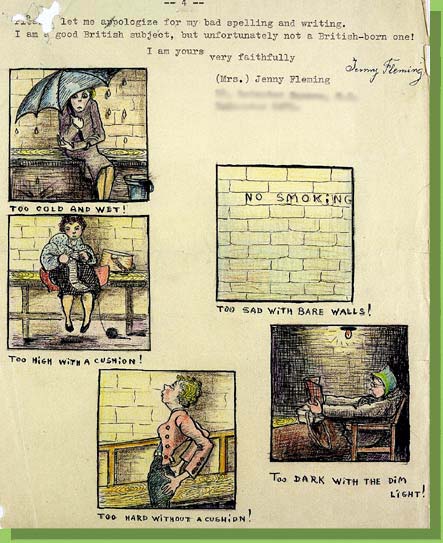 -- 4 --
let me apologize for my bad spelling and writing.
I am a good British subject, but unfortunately not a British-born one!
I am yours very faithfully
(Mrs.) Jenny Fleming
Jenny Fleming
TOO COLD AND WET!
NO SMOKING
TOO SAD WITH BARE WALLS!
TOO HIGH WITH A CUSHION!
TOO DARK WITH THE DIM
LIGHT!
TOO HARD WITHOUT A CUSHION!